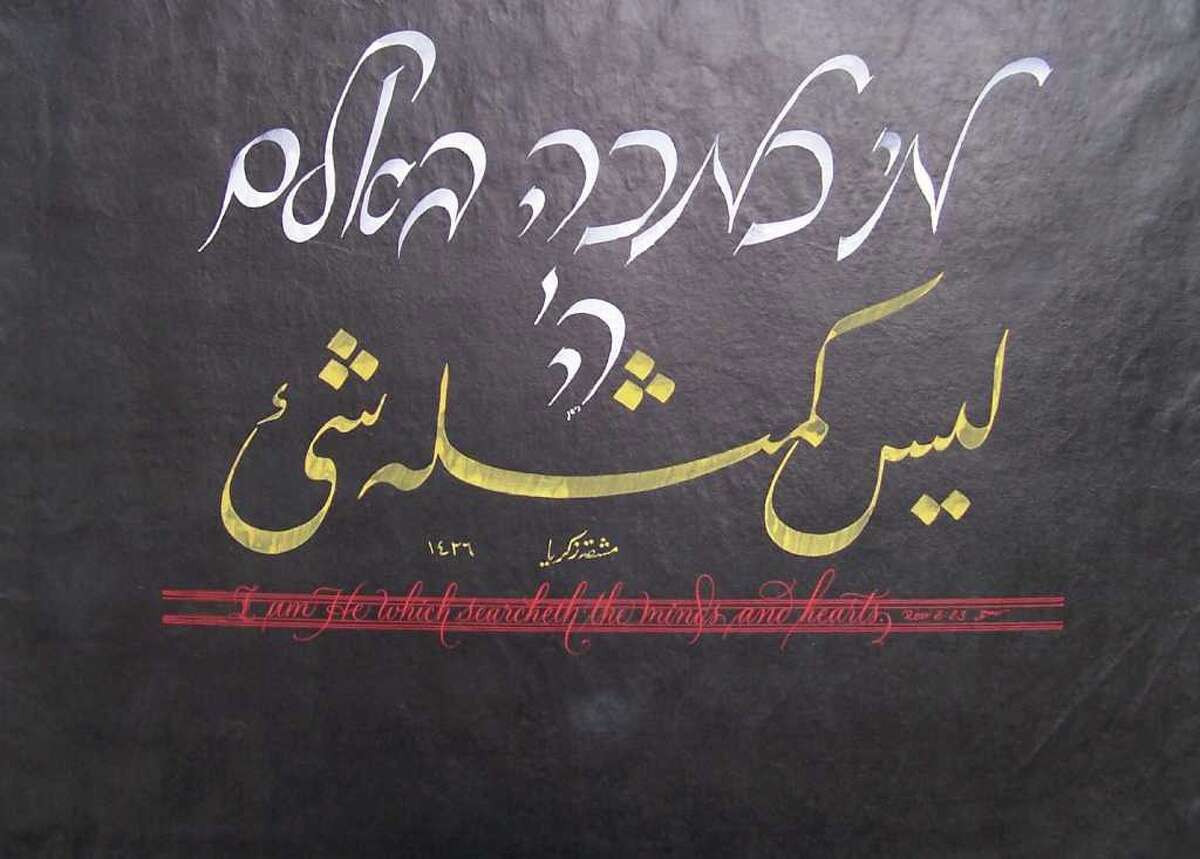 מי כמכה באלם
ה'
ليس كمثله شئ
مشقه زكريا ١٤٢٦
I am He which searcheth the minds and hearts. Rev 2:23